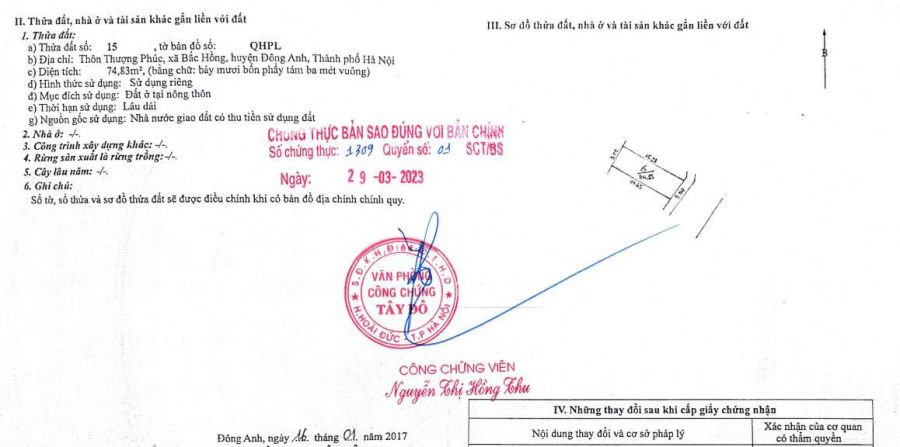 II. Thửa đất, nhà ở và tài sản khác gắn liền với đất
1. Thửa đất:
a) Thửa đất số: 15 , tờ bản đồ số: QHPL
b) Địa chỉ: Thôn Thượng Phúc, xã Bắc Hồng, huyện Đông Anh, Thành phố Hà Nội
c) Diện tích: 74,83m², (bằng chữ: bảy mươi bốn phẩy tám ba mét vuông)
d) Hình thức sử dụng: Sử dụng riêng
đ) Mục đích sử dụng: Đất ở tại nông thôn
e) Thời hạn sử dụng: Lâu dài
g) Nguồn gốc sử dụng: Nhà nước giao đất có thu tiền sử dụng đất
2. Nhà ở: -/-.
3. Công trình xây dựng khác: -/-.
4. Rừng sản xuất là rừng trồng: -/-.
5. Cây lâu năm: -/-.
6. Ghi chú:
Số tờ, số thửa và sơ đồ thửa đất sẽ được điều chỉnh khi có bản đồ địa chính chính quy.
CHỨNG THỰC BẢN SAO ĐÚNG VỚI BẢN CHÍNH
Số chứng thực: 1309 Quyển số: 01 SCT/BS
Ngày: 29-03-2023
S.Đ.K.H.Đ
T.H.D
VĂN PHÒNG
CÔNG CHỨNG
TÂY ĐÔ
H.HOÀI ĐỨC - T.P HÀ NỘI
CÔNG CHỨNG VIÊN
Nguyễn Thị Hồng Thu
Đông Anh, ngày 16 tháng 01 năm 2017
III. Sơ đồ thửa đất, nhà ở và tài sản khác gắn liền với đất
B
IV. Những thay đổi sau khi cấp giấy chứng nhận
Nội dung thay đổi và cơ sở pháp lý
Xác nhận của cơ quan
có thẩm quyền